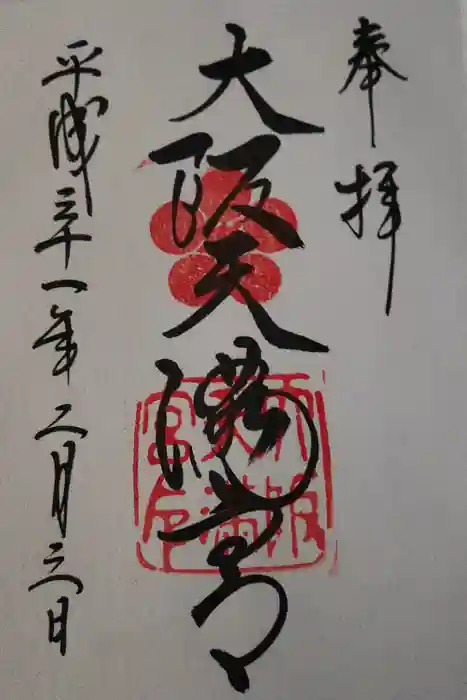 奉拝
大阪天満宮
平成三十一年二月三日
大阪天満宮印